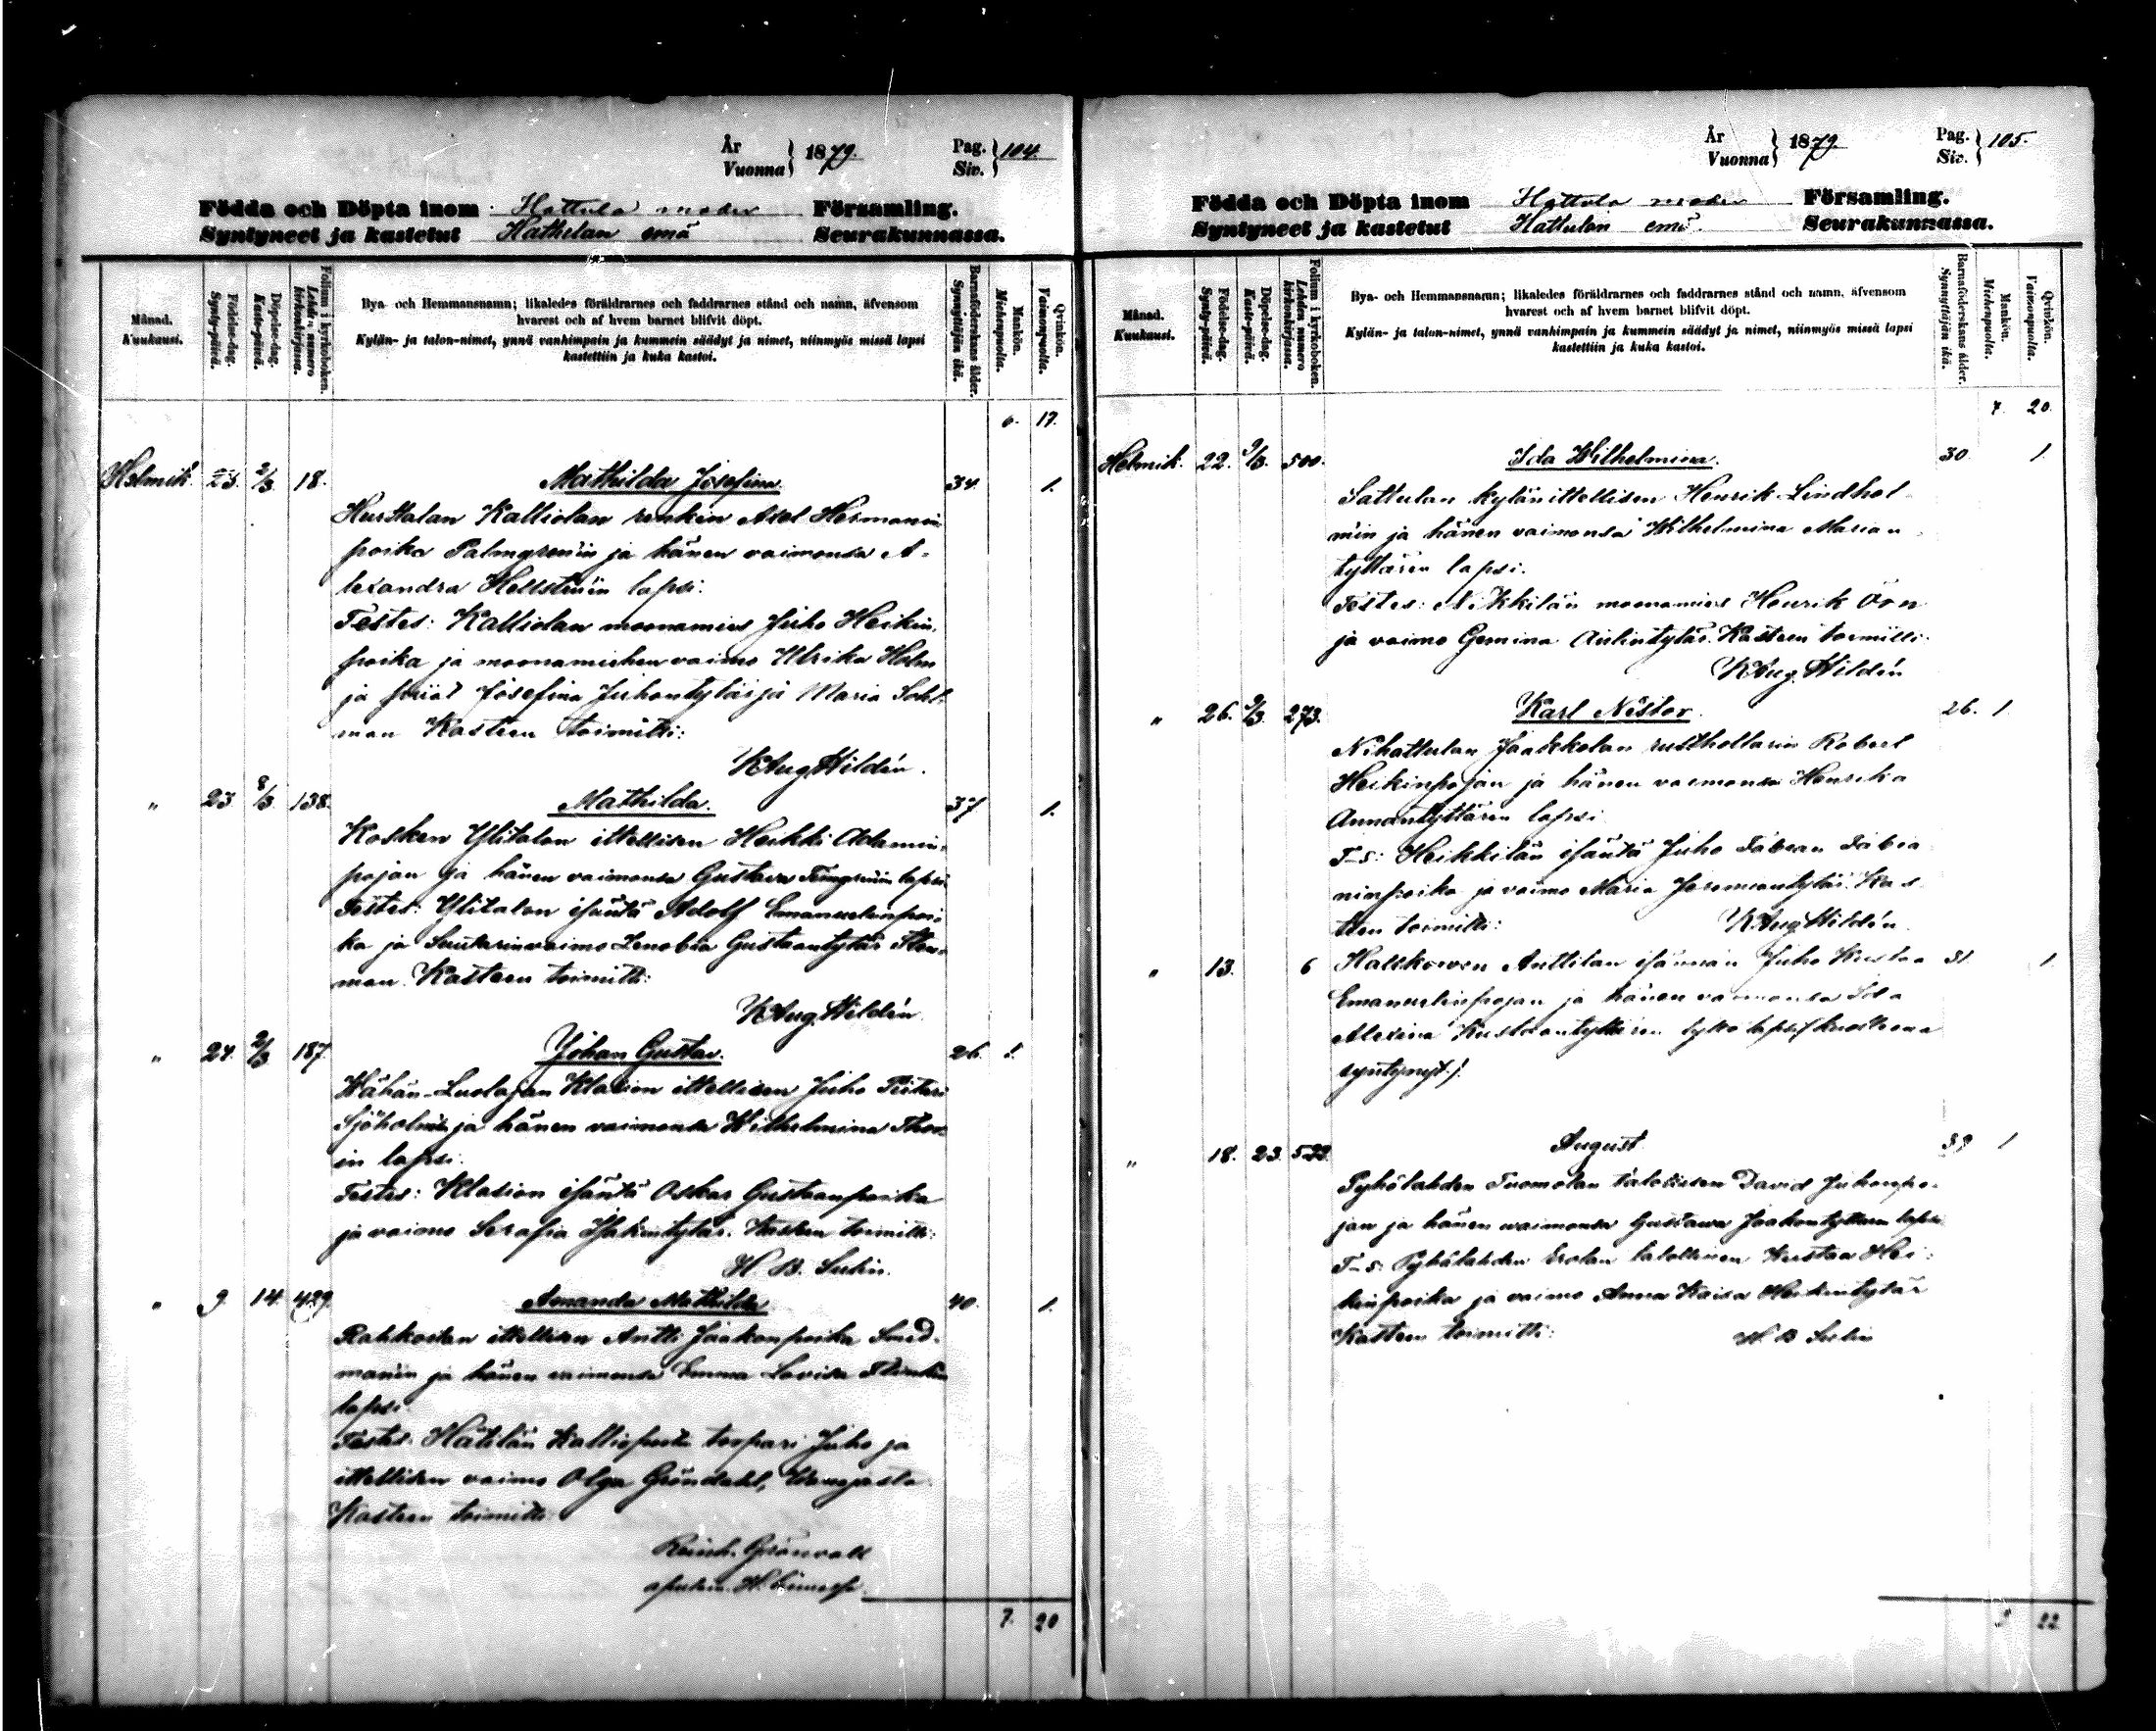 År
Vuonna } 1879.
Pag.
Siv. } 104.
Födda och Döpta inom Hattula moder Församling.
Syntyneet ja kastetut Hattulan emä Seurakunnassa.
Månad.
Kuukausi.
Födelse-dag.
Synty-päivä.
Döpelse-dag.
Kaste-päivä.
Folium i kyrkoboken.
Lehden numero kirkonkirjassa.
Bya- och Hemmansnamn; likaledes föräldrarnes och faddrarnes stånd och namn, äfvensom
hvarest och af hvem barnet blifvit döpt.
Kylän- ja talon-nimet, ynnä vanhimpain ja kummein säädyt ja nimet, niinmyös missä lapsi
kastettiin ja kuka kastoi.
Barnaföderskans ålder.
Synnyttäjän ikä.
Mankön.
Miehenpuolta.
Qvinkön.
Vaimonpuolta.
6. 17.
Helmik. 23. 2/3 18. Mathilda Josefina. 34. 1.
Hurttalan Kalliolan renkin Axel Hermanin
poika Palmgrenin ja hänen vaimonsa A-
lexandra Hellströmin lapsi.
Testes: Kalliolan moonamies Juho Heikin
poika ja moonamiehen vaimo Ulrika Holm
ja piiat Josefina Juhontytär ja Maria Sohl-
man Kasteen toimitti:
K Aug. Hildén.
" 23. 8/3 138. Mathilda. 37 1.
Kosken Ylitalon ittellisen Heikki Adamin-
pojan ja hänen vaimonsa Gustava lapsi.
Testes: Ylitalon isäntä Adolf Emanuelinpoi-
ka ja Suutarinvaimo Zenobia Gustaantytär
man. Kasteen toimitti:
K Aug. Hildén.
" 24. 2/3 187. Johan Gustav. 26. 1.
Wähän-Luolajan Klasion ittellisen Juho
Sjöholmin ja hänen vaimonsa Wilhelmina Thor-
in lapsi.
Testes: Klasion isäntä Oskar Gustaanpoika
ja vaimo Serafia Isakintytär. Kasteen toimitti:
H. B. Sulin.
" 9. 14. 429. Amanda Mathilda 40. 1.
Rahkoilan ittellisen Antti Jaakonpoika Smed-
manin ja hänen vaimonsa Emma Lovisa
lapsi.
Testes. Hätilän torpari Juho ja
ittellisen vaimo Olga Gröndahl,
Kasteen toimitti:
Reinh. Grönvall
7. 20
År
Vuonna } 1879
Pag.
Siv. } 105.
Födda och Döpta inom Hattula moder Församling.
Syntyneet ja kastetut Hattulan emä. Seurakunnassa.
Månad.
Kuukausi.
Födelse-dag.
Synty-päivä.
Döpelse-dag.
Kaste-päivä.
Folium i kyrkoboken.
Lehden numero kirkonkirjassa.
Bya- och Hemmansnamn; likaledes föräldrarnes och faddrarnes stånd och namn, äfvensom
hvarest och af hvem barnet blifvit döpt.
Kylän- ja talon-nimet, ynnä vanhimpain ja kummein säädyt ja nimet, niinmyös missä lapsi
kastettiin ja kuka kastoi.
Barnaföderskans ålder.
Synnyttäjän ikä.
Mankön.
Miehenpuolta.
Qvinkön.
Vaimonpuolta.
7. 20.
Helmik. 22. 9/3. 500. Ida Wilhelmina. 30 1.
Sattulan kylän ittellisen Henrik Lindhol-
min ja hänen vaimonsa Wilhelmina Marian
tyttären lapsi.
Testes: Nikkilän moonamies Henrik Öön
ja vaimo Gemina Antintytär. Kasteen toimitti:
K Aug. Hildén
" 26. 9/3 273. Karl Nestor. 26. 1.
Nihattulan Jaakkolan rusthollarin Robert
Heikinpojan ja hänen vaimonsa Henrika
Annantyttären lapsi.
T-s: Heikkilän isäntä Juho Fabian Fabia
ninpoika ja vaimo Maria Jeremiantytär. Kas-
teen toimitti: K Aug. Hildén.
" 13. 6 Anttilan isännän Juho Kustaa 31 1.
Emanuelinpojan ja hänen vaimonsa Ida
Alexina Kustaantyttären tyttö lapsi (kuolleena
syntynyt.)
" 18. 23. August. 39 1
Pyhölahden Tuomolan talollisen David Juhonpo-
jan ja hänen vaimonsa Gustawa Jaakontyttären lapsi
T-s: Pyhälahden Erolan talollinen Kustaa Hei-
kinpoika ja vaimo Anna Kaisa Heikintytär
Kasteen toimitti: H. B Sulin
22